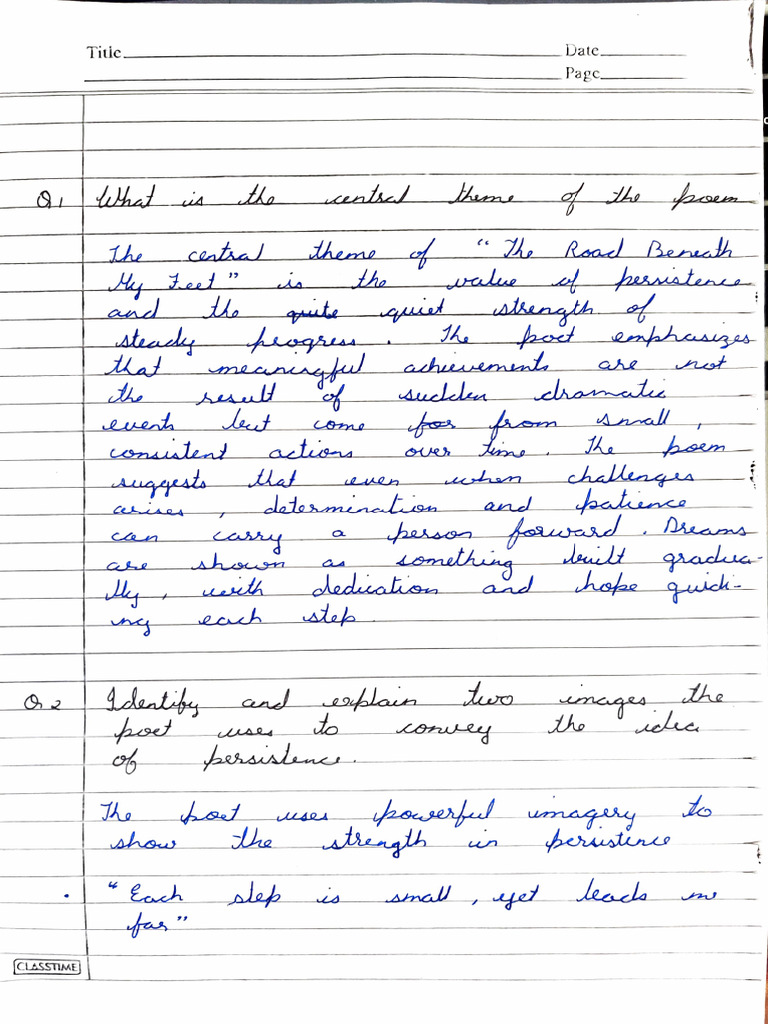 Title
Date
Page
Q1 What is the central theme of the poem
The central theme of "The Road Beneath
My Feet" is the value of persistence
and the quite quiet strength of
steady progress. The poet emphasizes
that meaningful achievements are not
the result of sudden dramatic
events but come for from small,
consistent actions over time. The poem
suggests that even when challenges
arises, determination and patience
can carry a person forward. Dreams
are shown as something built gradua-
lly, with dedication and hope guidi-
ng each step.
Q2 Identify and explain two images the
poet uses to convey the idea
of persistence.
The poet uses powerful imagery to
show the strength in persistence
• "Each step is small, yet leads me
far"
CLASSTIME